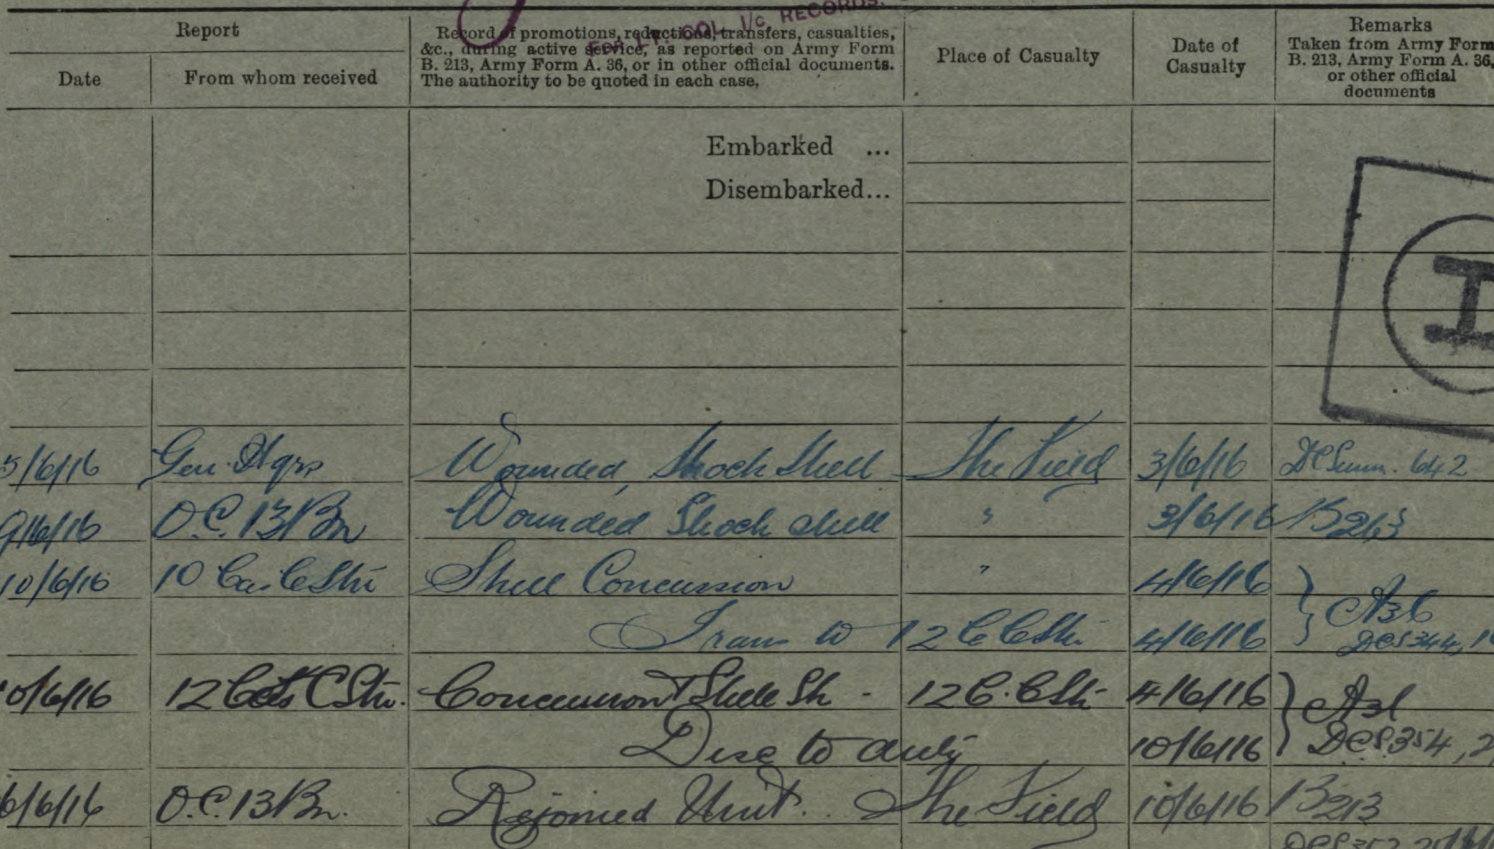 FOR LT. COL. I/c. RECORDS.
Report
Date
From whom received
Record of promotions, reductions, transfers, casualties,
&c., during active service, as reported on Army Form
B. 213, Army Form A. 36, or in other official documents.
The authority to be quoted in each case.
Place of Casualty
Date of
Casualty
Remarks
Taken from Army Form
B. 213, Army Form A. 36,
or other official
documents
Embarked ...
Disembarked...
I
5/6/16 Gen. Hqrs Wounded, Shock Shell The Field 3/6/16 642
9/6/16 O.C. 13 Bn Wounded Shock shell " 3/6/16 B213
10/6/16 10 Cas C Stn Shell Concussion " 4/6/16
Trans to 12 C C Stn 4/6/16 A36
DCS 344,
10/6/16 12 Cas C Stn. Concussion Shell Sh - 12 C. C Stn 4/6/16
Disc to duty 10/6/16 DCS. 354, 2
6/6/16 O.C. 13 Bn. Rejoined Unit. The Field 10/6/16 B213